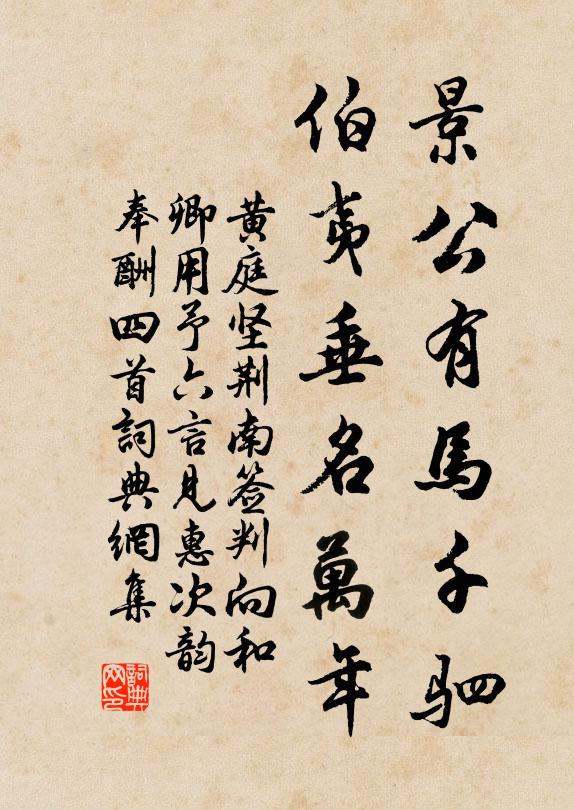 景公有馬千駟
伯夷垂名萬年
黄庭坚荆南签判向和
卿用予六言見惠次韵
奉酬四首詞典網集
詞典网印